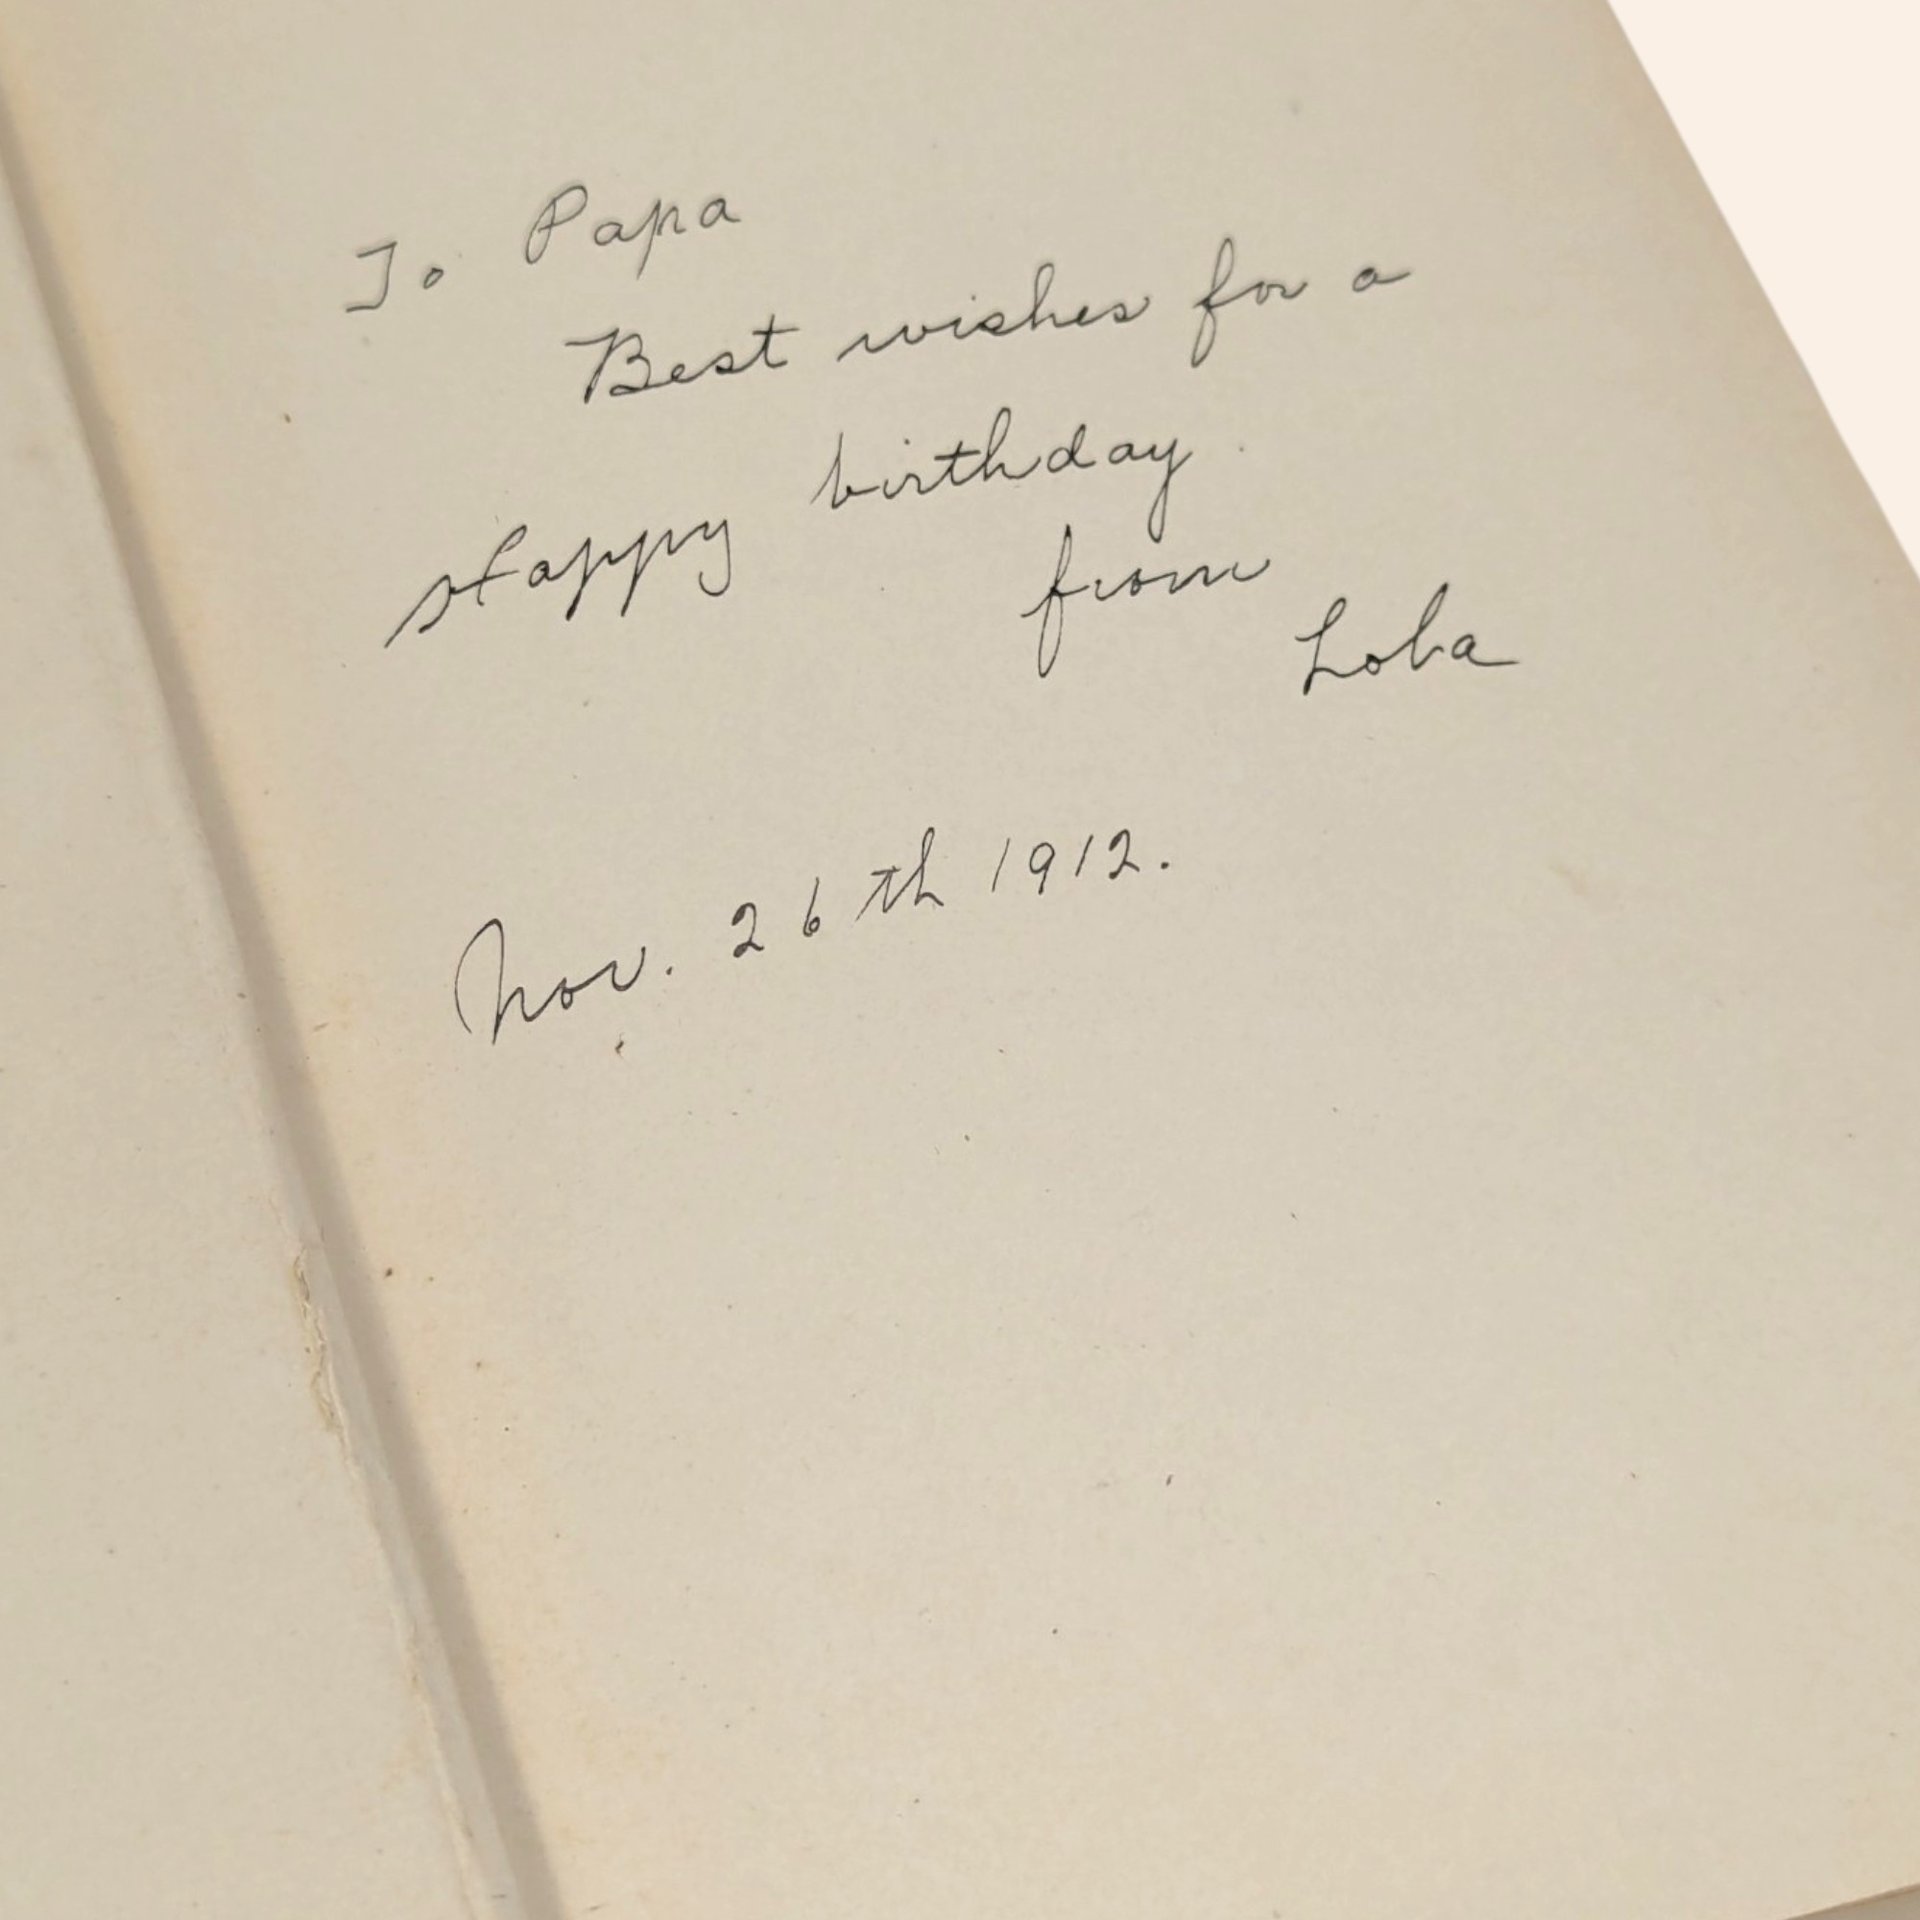 To Papa
Best wishes for a
Happy birthday.
from
Loba
Nov. 26th 1912.